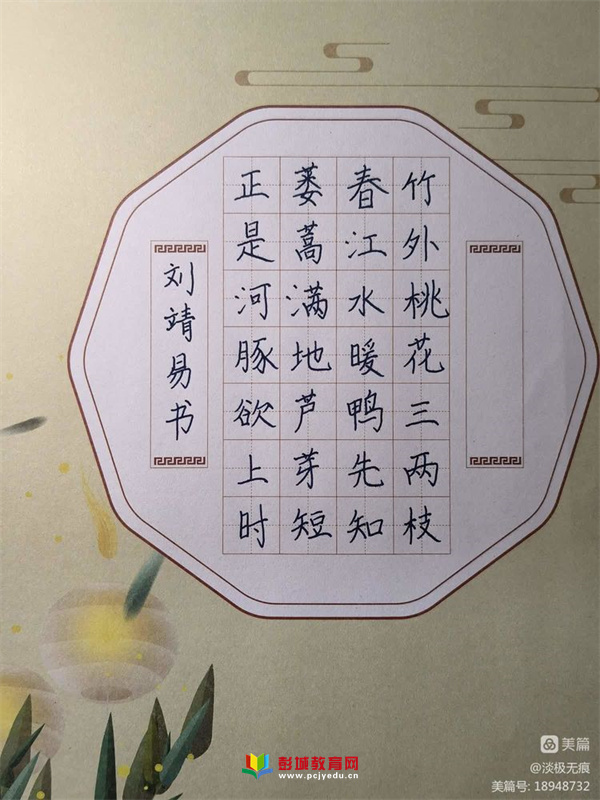 竹外桃花三两枝
春江水暖鸭先知
蒌蒿满地芦芽短
正是河豚欲上时
刘靖易书
彭城教育网
www.pcjyedu.cn
美篇
@淡极无痕
美篇号: 18948732